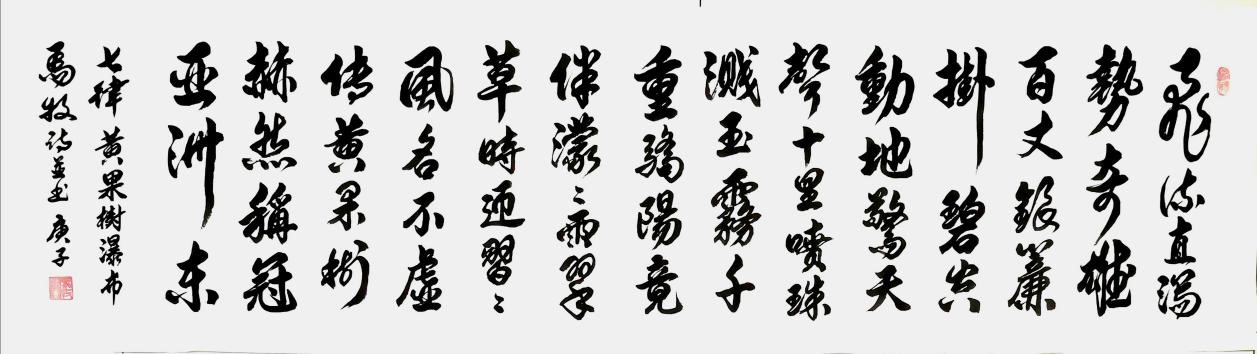 飛流直瀉
勢奇雄
百丈銀簾
掛碧空
動地驚天
聲十里噴珠
濺玉霧千
重驕陽竟
伴濛〻雨翠
草時迎習〻
風名不虛
傳黄果樹
赫然稱冠
亚洲東
七律黄果樹瀑布
馬牧诗並书庚子